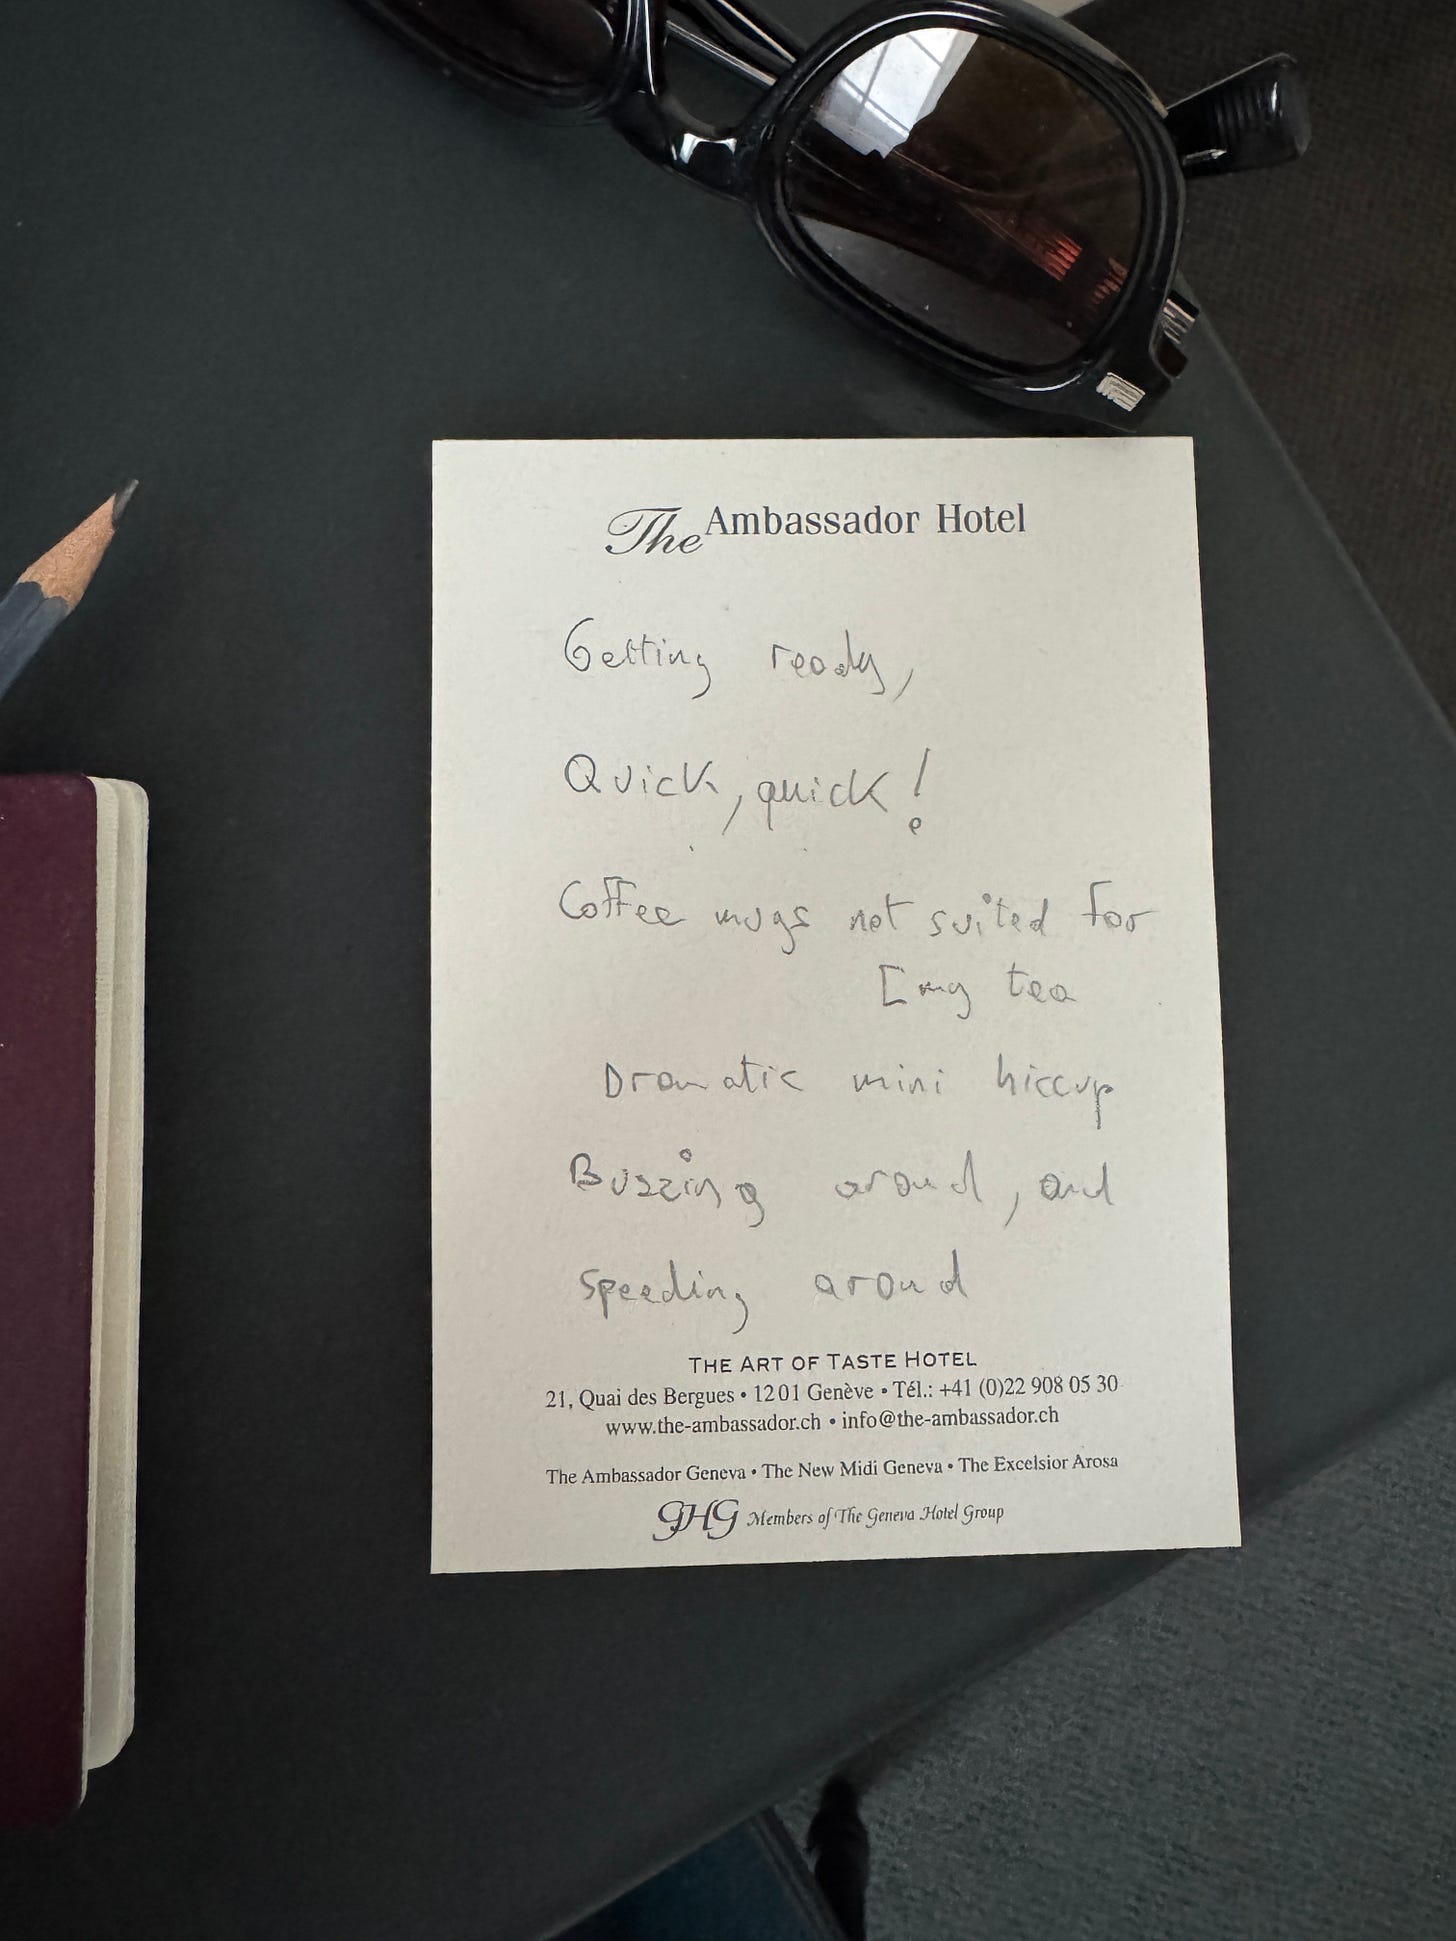 The Ambassador Hotel
Getting ready,
Quick, quick!
Coffee mugs not suited for
[my tea
Dramatic mini hiccup
Buzzing around, and
speeding around
THE ART OF TASTE HOTEL
21, Quai des Bergues • 1201 Genève • Tél.: +41 (0)22 908 05 30
www.the-ambassador.ch • info@the-ambassador.ch
The Ambassador Geneva • The New Midi Geneva • The Excelsior Arosa
GHG Members of The Geneva Hotel Group